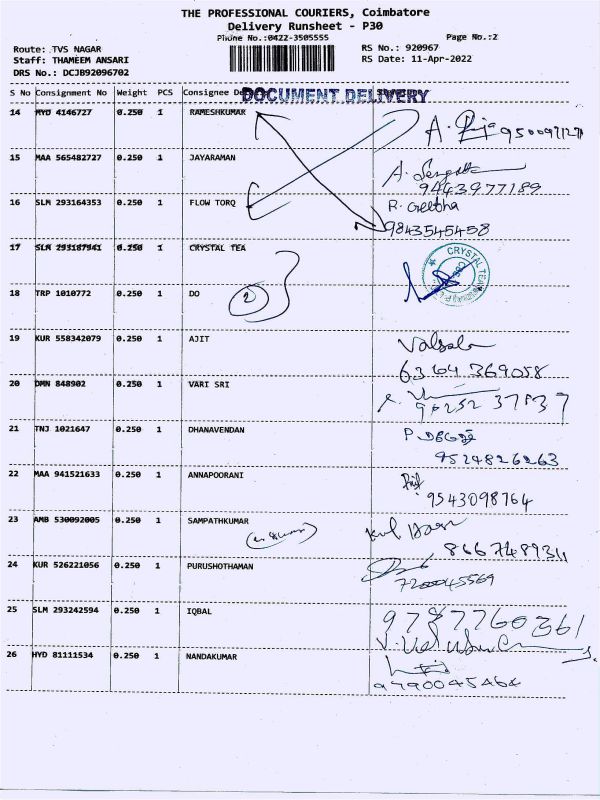 THE PROFESSIONAL COURIERS, Coimbatore
Delivery Runsheet - P30
Phone No.:0422-3505555
Page No.:2
Route: TVS NAGAR
RS No.: 920967
Staff: THAMEEM ANSARI
RS Date: 11-Apr-2022
DRS No.: DCJB92096702
S No Consignment No Weight PCS Consignee
DOCUMENT DELIVERY
14 HYD 4146727 0.250 1 RAMESHKUMAR
15 MAA 565482727 0.250 1 JAYARAMAN
9443977189
16 SLM 293164353 0.250 1 FLOW TORQ R. Geetha
9843545458
17 SLM 293187941 0.250 1 CRYSTAL TEA
CRYSTAL TEA
18 TRP 1010772 0.250 1 DO 2
19 KUR 558342079 0.250 1 AJIT Valsala
6364 369058
20 DMN 848902 0.250 1 VARI SRI
96252 37837
21 TNJ 1021647 0.250 1 DHANAVENDAN
9524826263
22 MAA 941521633 0.250 1 ANNAPOORANI
9543098764
23 AMB 530092005 0.250 1 SAMPATHKUMAR
24 KUR 526221056 0.250 1 PURUSHOTHAMAN
7200045569
25 SLM 293242594 0.250 1 IQBAL 9787760361
26 HYD 81111534 0.250 1 NANDAKUMAR
9790045464